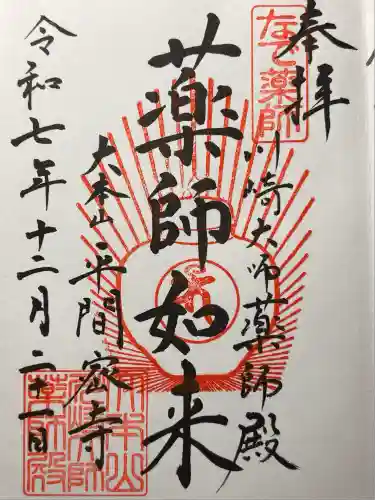 奉拝
なで薬師
川崎大師薬師殿
薬師如来
大本山平間密寺
令和七年十二月二十一日